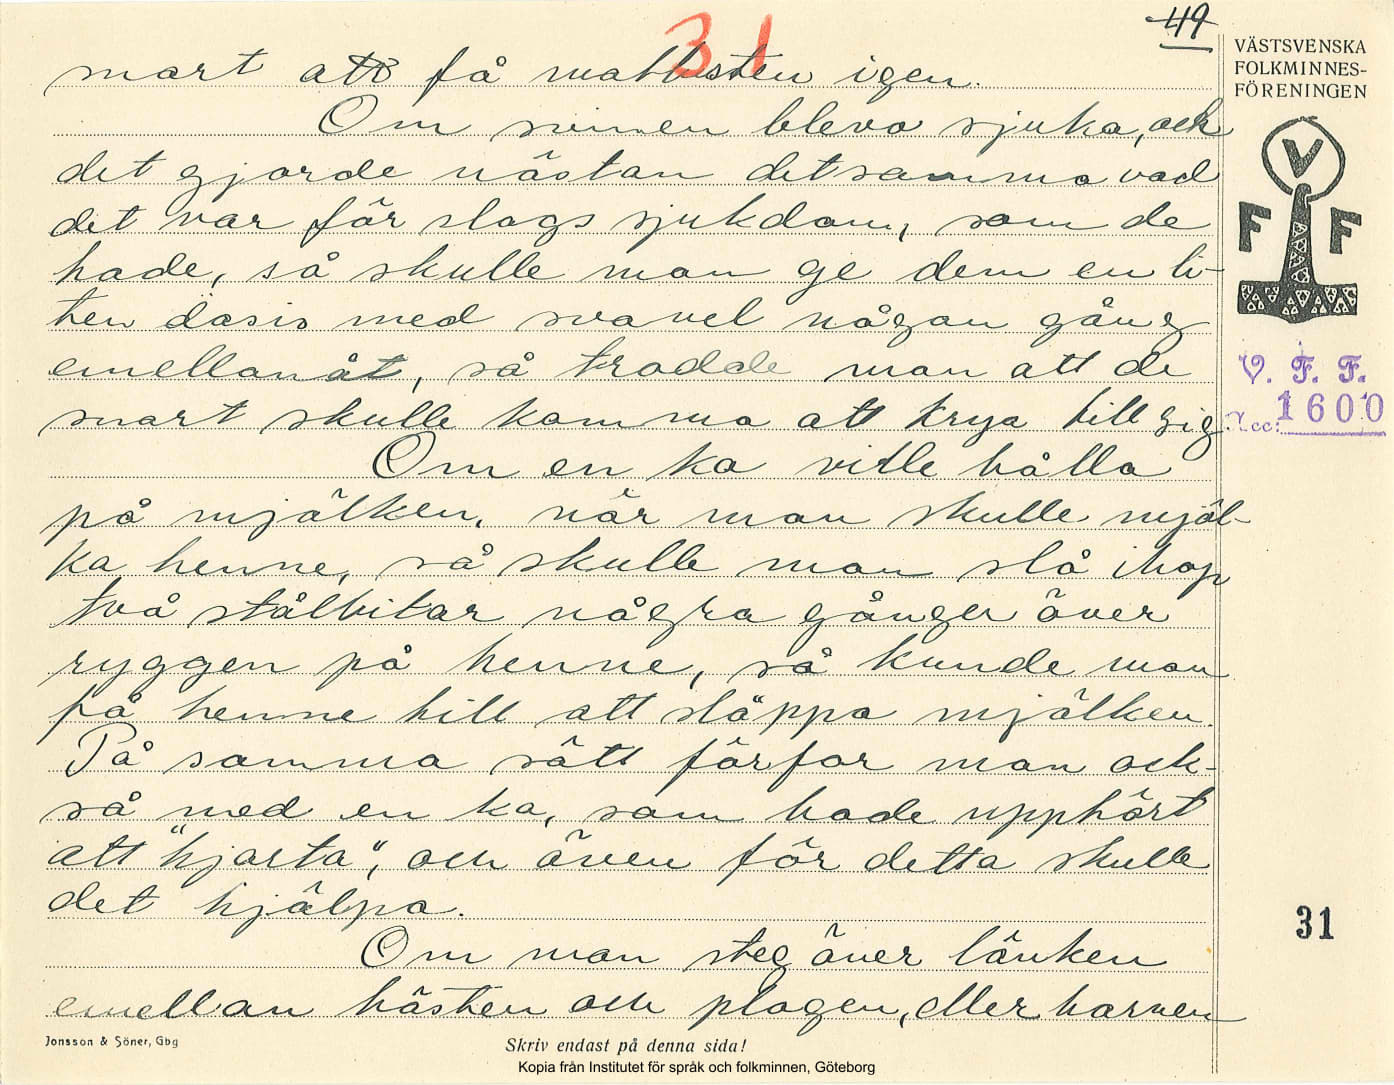 49
31
VÄSTSVENSKA
FOLKMINNES-
FÖRENINGEN
V
F F
V. F. F.
Acc: 1600
snart att få matlusten igen.
Om svinen blevo sjuka, och
det gjorde nästan detsamma vad
det var för slags sjukdom, som de
hade, så skulle man ge dem en li-
ten dosis med svavel någon gång
emellanåt, så trodde man att de
snart skulle komma att krya till sig
Om en ko ville hålla
på mjölken, när man skulle mjöl-
ka henne, så skulle man slå ihop
två stålbitar några gånger över
ryggen på henne, så kunde man
få henne till att släppa mjölken.
På samma sätt förfor man ock-
så med en ko, som hade upphört
att "hjorta", och även för detta skulle
det hjälpa.
Om man steg över länken
emellan hästen och plogen, eller harven
31
Jonsson & Söner, Gbg
Skriv endast på denna sida!
Kopia från Institutet för språk och folkminnen, Göteborg